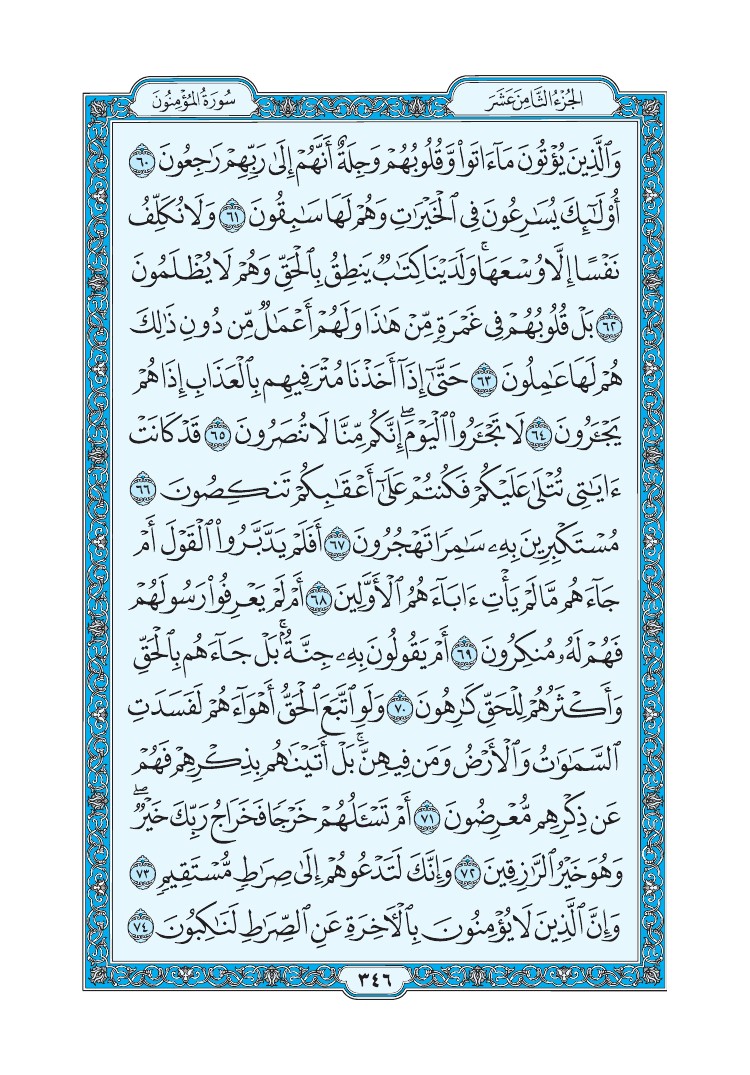 سُورَةُ المُؤْمِنُون
الجُزْءُ الثَّامِنَ عَشَرَ
وَٱلَّذِينَ يُؤْتُونَ مَآ ءَاتَوا۟ وَّقُلُوبُهُمْ وَجِلَةٌ أَنَّهُمْ إِلَىٰ رَبِّهِمْ رَٰجِعُونَ ٦٠
أُو۟لَٰٓئِكَ يُسَٰرِعُونَ فِى ٱلْخَيْرَٰتِ وَهُمْ لَهَا سَٰبِقُونَ ٦١ وَلَا نُكَلِّفُ
نَفْسًا إِلَّا وُسْعَهَا ۚ وَلَدَيْنَا كِتَٰبٌ يَنطِقُ بِٱلْحَقِّ وَهُمْ لَا يُظْلَمُونَ
٦٢ بَلْ قُلُوبُهُمْ فِى غَمْرَةٍ مِّنْ هَٰذَا وَلَهُمْ أَعْمَٰلٌ مِّن دُونِ ذَٰلِكَ
هُمْ لَهَا عَٰمِلُونَ ٦٣ حَتَّىٰٓ إِذَآ أَخَذْنَا مُتْرَفِيهِم بِٱلْعَذَابِ إِذَا هُمْ
يَجْـَٔرُونَ ٦٤ لَا تَجْـَٔرُوا۟ ٱلْيَوْمَ ۖ إِنَّكُم مِّنَّا لَا تُنصَرُونَ ٦٥ قَدْ كَانَتْ
ءَايَٰتِى تُتْلَىٰ عَلَيْكُمْ فَكُنتُمْ عَلَىٰٓ أَعْقَٰبِكُمْ تَنكِصُونَ ٦٦
مُسْتَكْبِرِينَ بِهِۦ سَٰمِرًا تَهْجُرُونَ ٦٧ أَفَلَمْ يَدَّبَّرُوا۟ ٱلْقَوْلَ أَمْ
جَآءَهُم مَّا لَمْ يَأْتِ ءَابَآءَهُمُ ٱلْأَوَّلِينَ ٦٨ أَمْ لَمْ يَعْرِفُوا۟ رَسُولَهُمْ
فَهُمْ لَهُۥ مُنكِرُونَ ٦٩ أَمْ يَقُولُونَ بِهِۦ جِنَّةٌۢ ۚ بَلْ جَآءَهُم بِٱلْحَقِّ
وَأَكْثَرُهُمْ لِلْحَقِّ كَٰرِهُونَ ٧٠ وَلَوِ ٱتَّبَعَ ٱلْحَقُّ أَهْوَآءَهُمْ لَفَسَدَتِ
ٱلسَّمَٰوَٰتُ وَٱلْأَرْضُ وَمَن فِيهِنَّ ۚ بَلْ أَتَيْنَٰهُم بِذِكْرِهِمْ فَهُمْ
عَن ذِكْرِهِم مُّعْرِضُونَ ٧١ أَمْ تَسْـَٔلُهُمْ خَرْجًا فَخَرَاجُ رَبِّكَ خَيْرٌ ۖ
وَهُوَ خَيْرُ ٱلرَّٰزِقِينَ ٧٢ وَإِنَّكَ لَتَدْعُوهُمْ إِلَىٰ صِرَٰطٍ مُّسْتَقِيمٍ ٧٣
وَإِنَّ ٱلَّذِينَ لَا يُؤْمِنُونَ بِٱلْءَاخِرَةِ عَنِ ٱلصِّرَٰطِ لَنَٰكِبُونَ ٧٤
٣٤٦